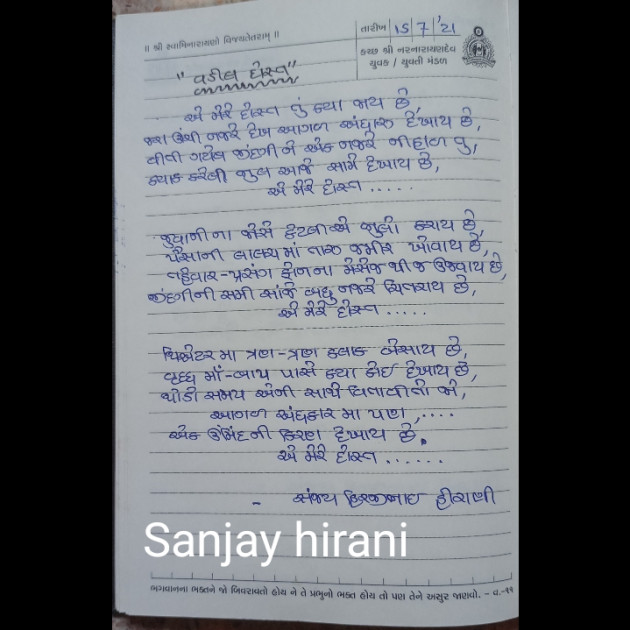 ॥ શ્રી સ્વામિનારાયણો વિજયતેતરામ્ ॥
તારીખ 15/7/'21
કચ્છ શ્રી નરનારાયણદેવ
યુવક / યુવતી મંડળ
"વડીલ દોસ્ત"
એ મેરે દોસ્ત તું ક્યા જાય છે,
જરા ઉંચી નજરે દેખ આગળ અંધારુ દેખાય છે,
વીતી ગયેલ જીંદગી ને એક નજરે નીહાળ તુ,
ક્યાક કરેલી ભુલ આજે સામે દેખાય છે,
એ મેરે દોસ્ત .....
જુવાની ના જોસે કેટલીએ ભુલો કરાય છે,
પૈસાની લાલચ માં તારુ જમીર ખોવાય છે,
તહેવાર-પ્રસંગ ફોન ના મેસેજ થી જ ઉજવાય છે,
જીંદગીની સમી સાંજે બધુ નજરે ચિતરાય છે,
એ મેરે દોસ્ત .....
થિએટર મા ત્રણ-ત્રણ કલાક બેસાય છે,
વૃદ્ધ માઁ-બાપ પાસે ક્યા કોઇ દેખાય છે,
થોડો સમય એની સાથે વિતાવીતો જો,
આગળ અંધકાર મા પણ ,....
એક ઉંમિદ ની કિરણ દેખાય છે.
એ મેરે દોસ્ત ......
- સંજય હિરજીભાઇ હીરાણી
Sanjay hirani
ભગવાનના ભક્તને જો બિવરાવતો હોય ને તે પ્રભુનો ભક્ત હોય તો પણ તેને અસુર જાણવો. - વ.-૧૧